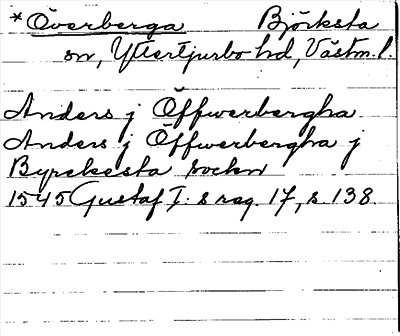 *Överberga Björksta
sn, Yttertjurbo hd, Västm. l.
Anders j Öffwerbergha
Anders j Öffwerbergha j
Byrckesta sockn
1545 Gustaf I:s reg. 17, s. 138